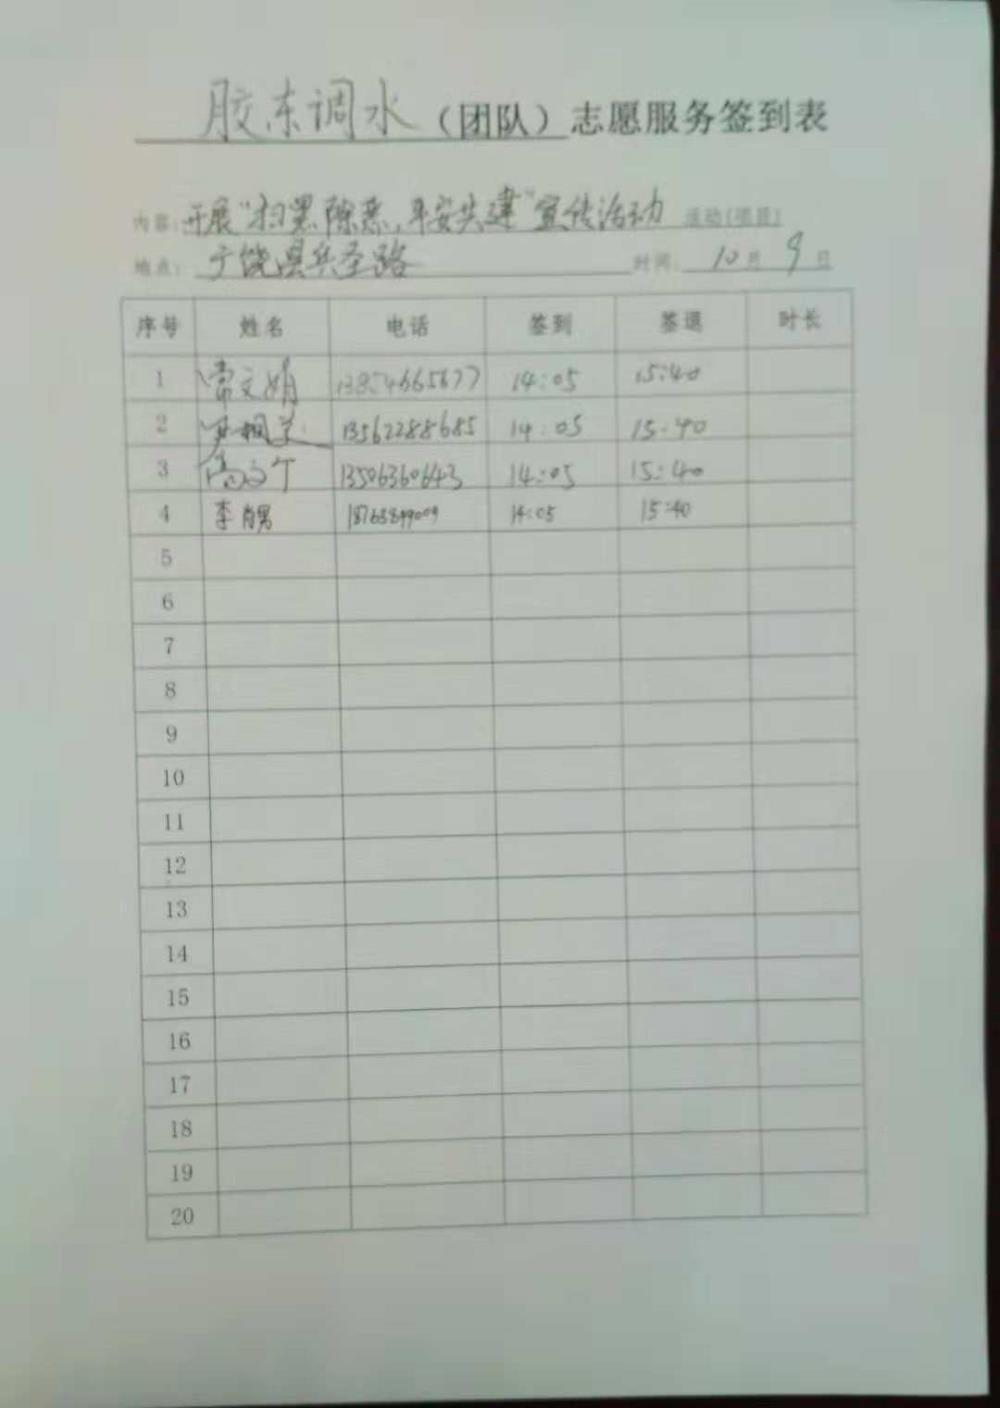 胶东调水（团队）志愿服务签到表
内容：开展“扫黑除恶，平安共建”宣传活动 活动(项目)
地点：广饶县兵圣路 时间：10月9日
序号 姓名 电话 签到 签退 时长
1 常文娟 13854665677 14:05 15:40
2 13562288685 14:05 15:40
3 13506360643 14:05 15:40
4 李肖男 14:05 15:40
5
6
7
8
9
10
11
12
13
14
15
16
17
18
19
20